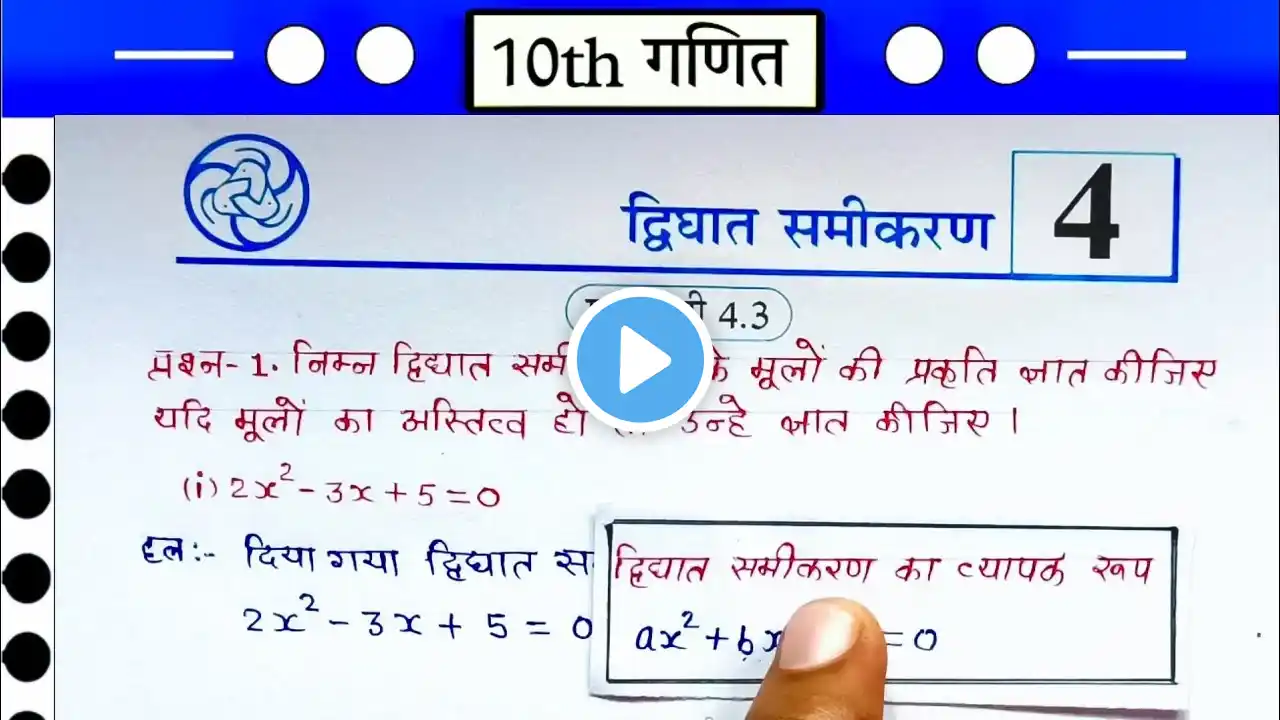 10th गणित
द्विघात समीकरण
4
4.3
प्रश्न-1. निम्न द्विघात मूलों की प्रकृति ज्ञात कीजिए
यदि मूलों का अस्तित्व हो उन्हे ज्ञात कीजिए।
(i) 2x² - 3x + 5 = 0
हल:- दिया गया द्विघात
द्विघात समीकरण का व्यापक रूप
2x² - 3x + 5 = 0
ax² + bx = 0